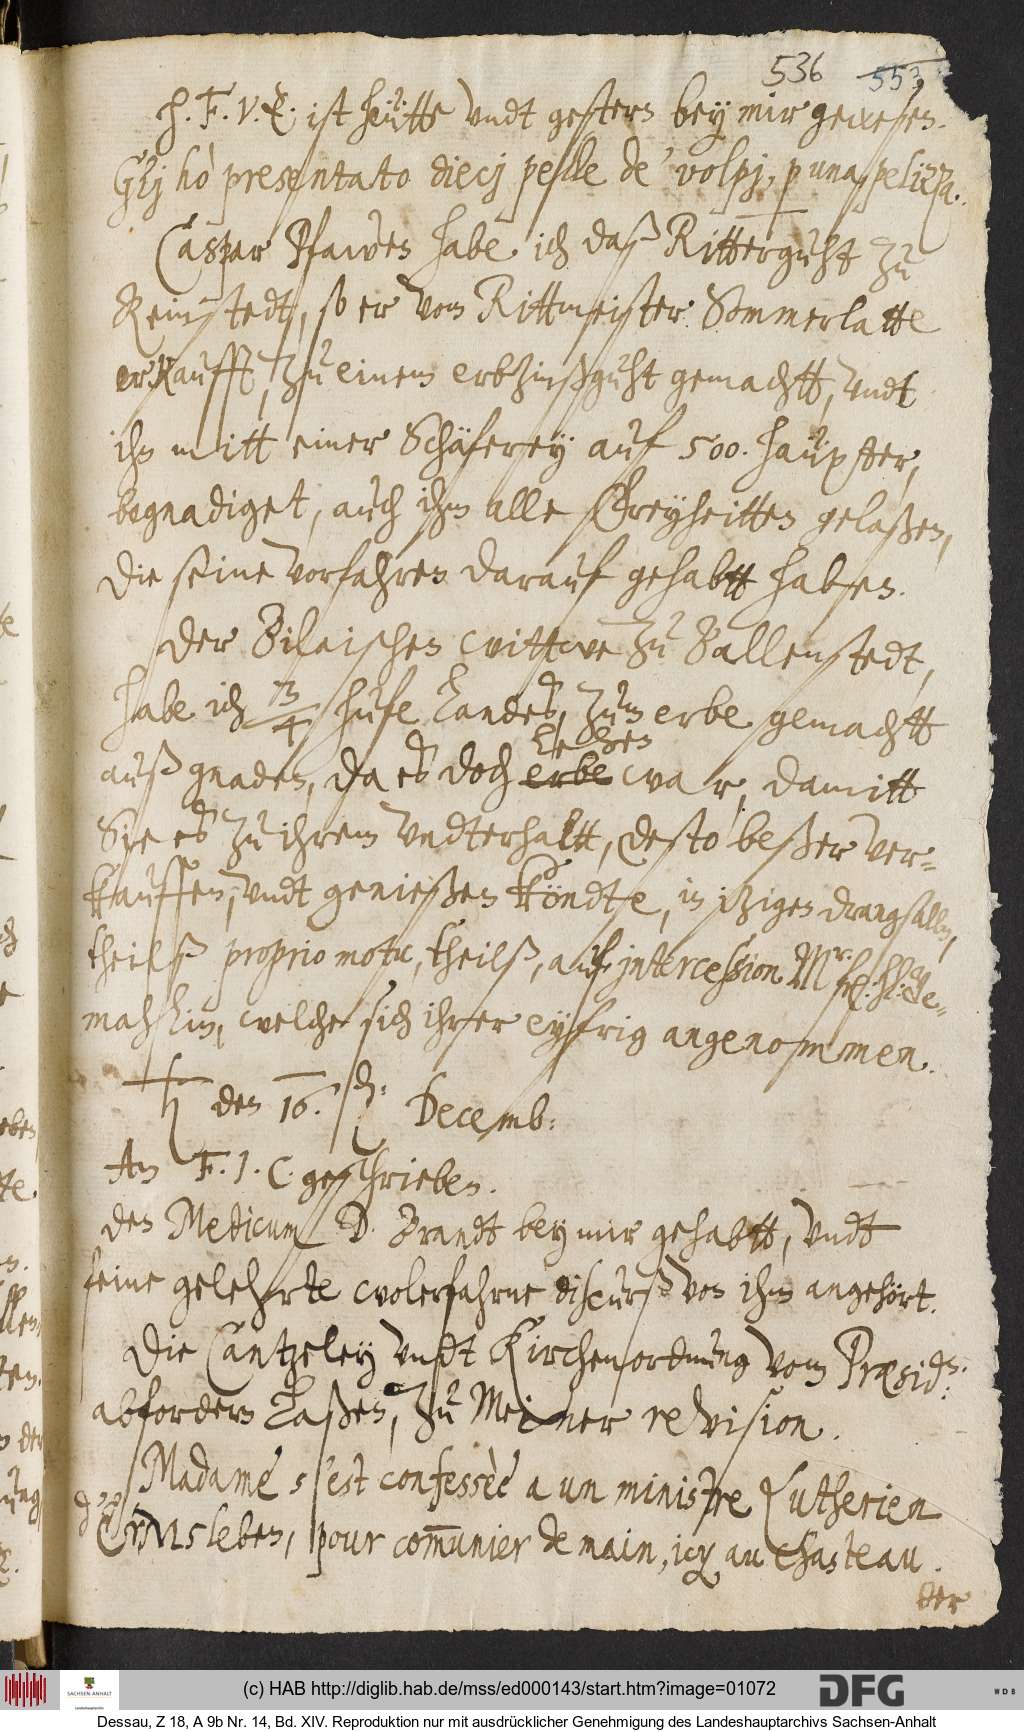 536 553
H. F. V. E. ist heütte vndt gestern bey mir gewesen.
Glj hò presentato diecj pelle de' volpj, p una pelizza.
Caspar Pfawen habe ich daß Ritterguht zu
Reinstedt, so er vom Rittmeister Sommerlatte
erkaufft, zu einem erbzinßguht gemachtt, vndt
ihn mitt einer Schäferey auf 500. haüpter,
begnadiget, auch ihm alle Freyheitten gelaßen,
die seine vorfahren darauf gehabtt haben.
Der Bilaischen wittwe zu Ballenstedt,
habe ich 3/4 hufe Landes, zum erbe gemachtt
auß gnaden, da es doch erbe Lehen war, damitt
Sie es zu ihrem vndterhaltt, desto beßer ver=
kauffen, vndt genießen köndte, in itzigen drangsallen,
theilß proprio motu, theilß, auf intercession Mr. frl: hl: Ge=
mahlin, welche sich ihrer eyfrig angenommen.
♄ den 16. Decemb:
An F. J. C. geschrieben.
Den Medicum D. Brandt bey mir gehabtt, vndt
seine gelehrte wolerfahrne discurß von ihm angehört.
Die Cantzeley vndt Kirchenordnung vom Præsid:
abfordern laßen, zu Meiner revision.
Madame s'est confessèè a un ministre Lutherien
d'Ermsleben, pour com̄unier demain, icy au Chasteau.
der
SACHSEN-ANHALT
Landeshauptarchiv
(c) HAB http://diglib.hab.de/mss/ed000143/start.htm?image=01072
DFG
WDB
Dessau, Z 18, A 9b Nr. 14, Bd. XIV. Reproduktion nur mit ausdrücklicher Genehmigung des Landeshauptarchivs Sachsen-Anhalt